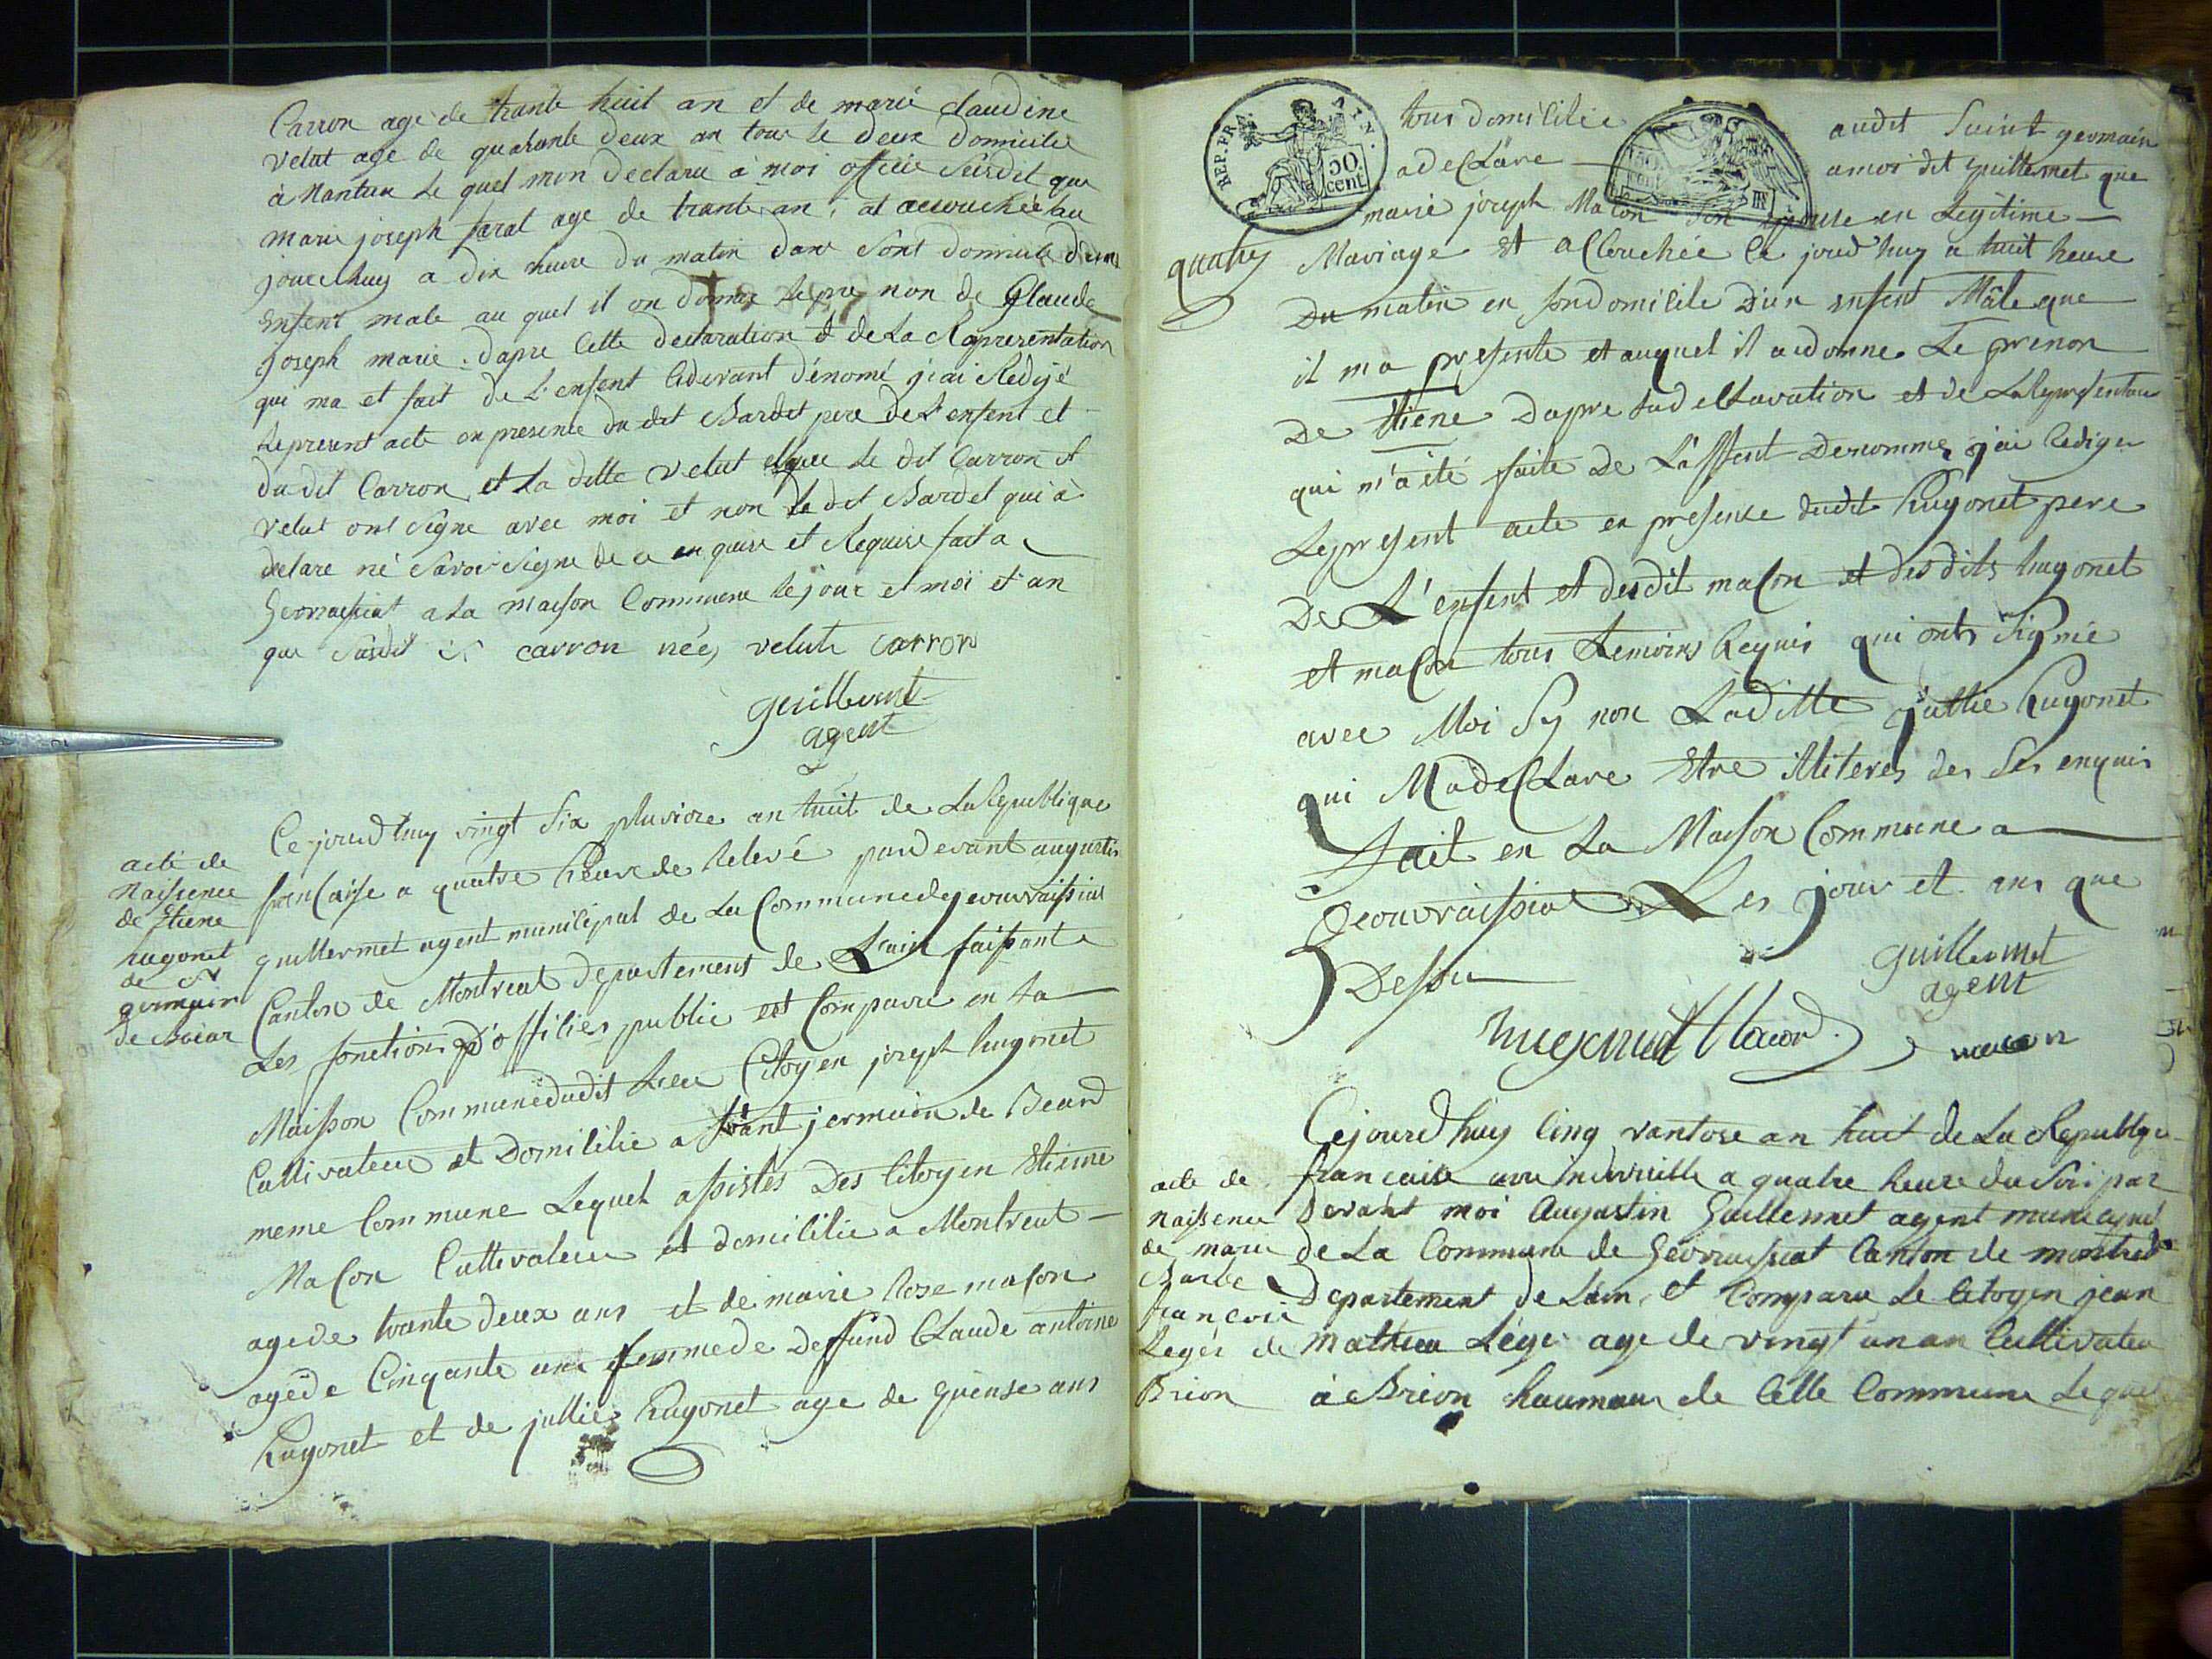 Carron age de trante huit an et de marie claudine
velut age de quarante deux an tous le deux domicilie
à Nantua le quel mon declaru à moi officie Susdit que
marie joseph faral age de trante an, at accouchée au
jourdhuy a dix heure du matin dans Sont domicile d'un
enfent male au quel il on donne le pre non de Claude
joseph marie. dapre Cette declaration et de La Representation
qui ma et fait de L'enfent Cidevant dénomé jiai Redijé
le present acte en presence du dit Bardet pere de L'enfent et
du dit Carron et La ditte velut que le dit Carron et
velut ont Signe avec moi et non le dit Bardet qui à
declare né Savoir Signe de ce enquis et Requise fait a
Geovraissiat a la maison Commune le jour et moi et an
que Susdit carron née velut carron
guillermet
agent
acte de
Naissence
de Etiene
hugonet
de St
germain
de Béar
Ce jourdhuy vingt Six pluviose an huit de La Republique
francaise a quatre heure de Relevé pardevant augustin
guillermet agent municipal de La Commune de geouvraissiat
Canton de Montreal departement de L'ain faissant
Les fonctions d'officier public est Comparu en La
Maisson Commune dudit Lieu Citoyen joseph hugonet
Cultivateur et Domicilié a saint jermain de Beard
meme Commune Lequel assistés Des Citoyen Etienne
Macon Cultivateur et domicilie a Montreal
agé de trante deux ans et de marie Rose macon
agéde Cinquante ans femme de deffund Claude antoine
hugonet et de jullie hugonet age de quense ans
REP. FRA. AIN.
50
cent.
tous domicilie audit Saint germain
a declare amoi dit guillermet que
marie joseph Macon Son epouse en Legitime
Mariage Et accouchée Ce jourd'huy a huit heure
Du matin en son domicile D'un enfent Mâle que
il m'a presente et auquel il a donne Le prenon
De Etiene Dapre Sa declaration et de La Representation
qui m'a été faite De L'affent Denommé j'ai Rediger
Le present acte en presence dudit hugonet pere
De L'enfent et desdit macon et desdits hugonet
et macon tous Temoins Requis qui onts Signié
avec Moi Sy non Laditte jullie hugonet
qui Ma declare Etre illiteres des Ses enquis
Fait en La Maison Commune a
Geouvraissiat Les jour et ans que
Dessu
guillermet
agent
hugonet Macon macon
acte de
naissence
de marie
Barbe
francoise
Leger de
Brion
Cejourdhuy Cinq vantose an huit de La Republique
francaise une indivisible a quatre heure du Soir par
devant moi Augustin Guillermet agent municipal
de La Commune de Geovraissiat Canton de montreal
departement de Lain, et Comparu Le Citoyen jean
mathieu Léger age de vingt un an Cultivateu
à Brion haumeau de Cette Commune Le quel